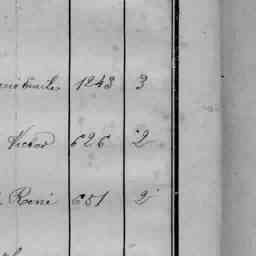 Emile 1243 3
Victor 626 2
René 651 2